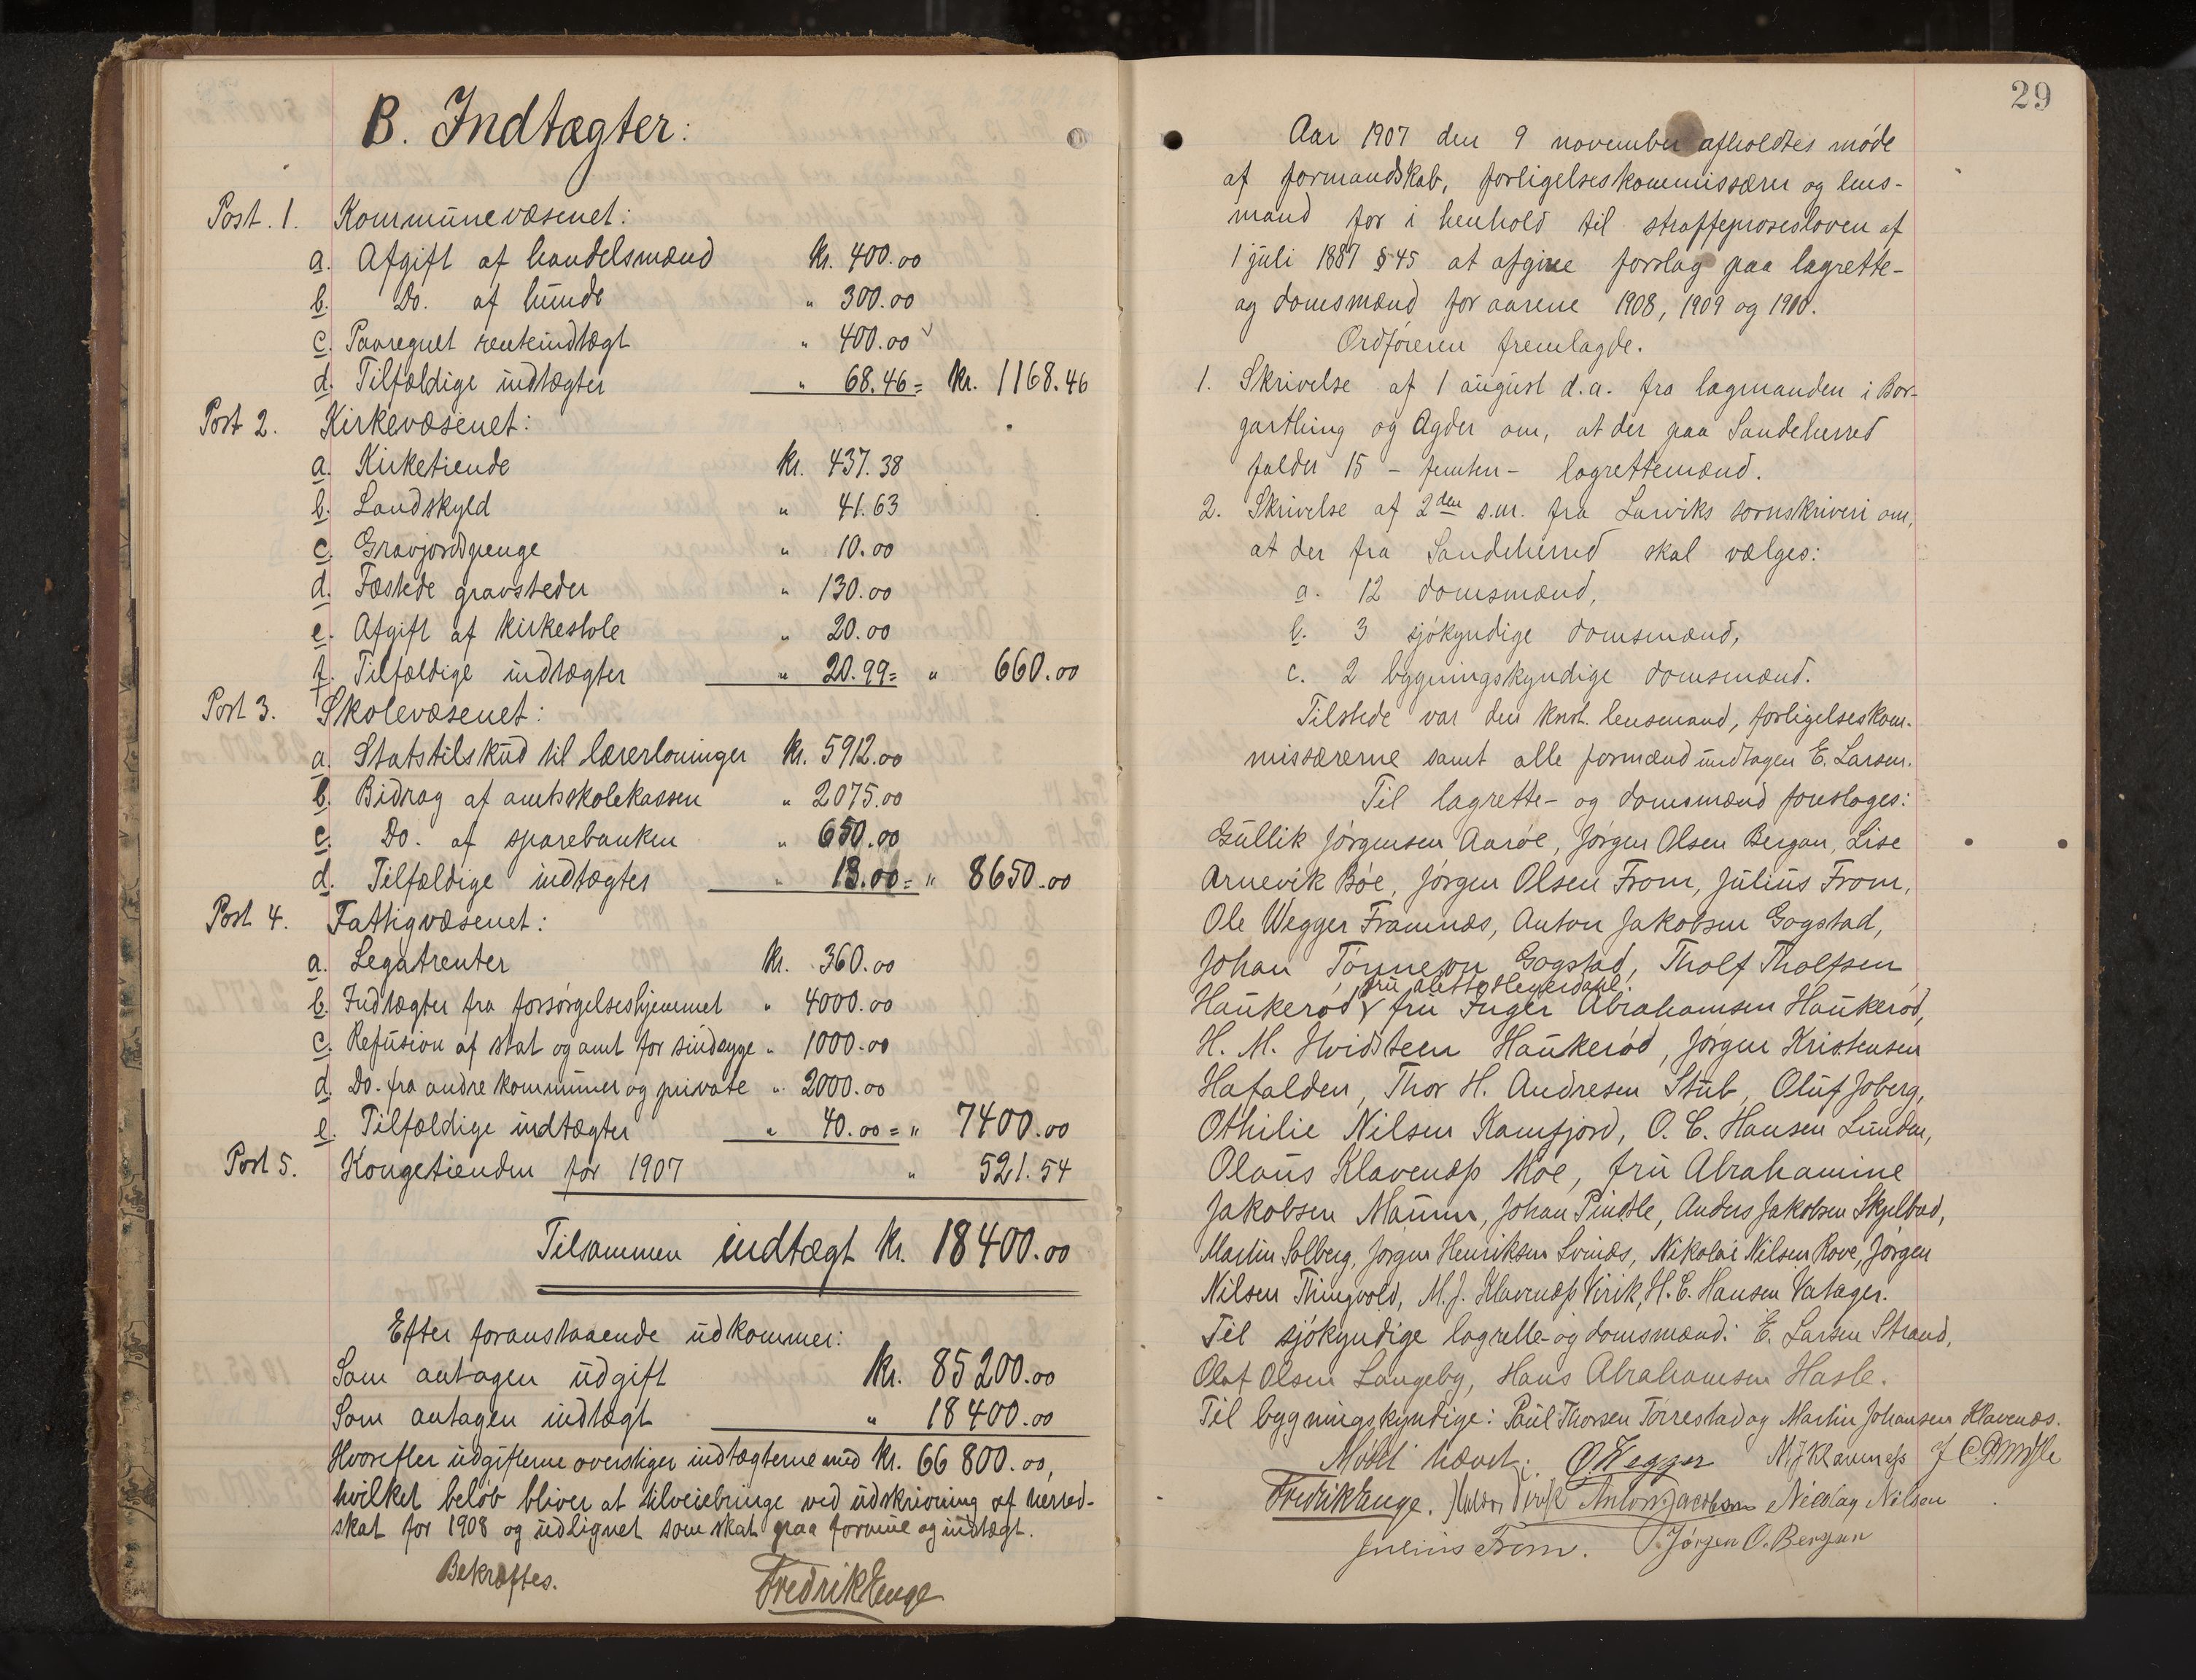 B. Indtægter:
Post. 1. Kommunevæsenet:
a. Afgift af handelsmænd kr. 400.00
b. Do. af hunde " 300.00
c. Paaregnet renteindtægt " 400.00
d. Tilfældige indtægter " 68.46 = kr. 1168.46
Post 2. Kirkevæsenet:
a. Kirketiende kr. 437.38
b. Landskyld " 41.63
c. Gravjordspenge " 10.00
d. Fæstede gravsteder " 130.00
e. Afgift af kirkestole " 20.00
f. Tilfældige indtægter " 20.99 = " 660.00
Post 3. Skolevæsenet:
a. Statstilskud til lærerlønninger kr. 5912.00
b. Bidrag af amtsskolekassen " 2075.00
c. Do. af sparebanken " 650.00
d. Tilfældige indtægter " 13.00 = " 8650.00
Post 4. Fattigvæsenet:
a. Legatrenter kr. 360.00
b. Indtægter fra forsørgelseshjemmet " 4000.00
c. Refusion af stat og amt for sindsyge " 1000.00
d. Do. fra andre kommuner og private " 2000.00
e. Tilfældige indtægter " 40.00 = " 7400.00
Post 5. Kongetienden for 1907 " 521.54
Tilsammen indtægt kr. 18400.00
Efter foranstaaende udkommer:
Som antagen udgift kr. 85200.00
Som antagen indtægt " 18400.00
Hvorefter udgifterne overstiger indtægterne med kr. 66800.00,
hvilket beløb bliver at tilveiebringe ved udskrivning af herred-
skat for 1908 og udlignet som skat paa formue og indtægt.
Bekræftes.
Fredrik Enge
29
Aar 1907 den 9 november afholdtes møde
af formandskab, forligelseskommissærer og lens-
mand for i henhold til straffeprosesloven af
1 juli 1887 § 45 at afgive forslag paa lagrette-
og domsmænd for aarene 1908, 1909 og 1910.
Ordføreren fremlagde.
1. Skrivelse af 1 august d.a. fra lagmanden i Bor-
garthing og Agder om, at der paa Sandeherred
falder 15 - femten - lagrettemænd.
2. Skrivelse af 2den s.m. fra Larviks sorenskriveri om,
at der fra Sandeherred skal vælges:
a. 12 domsmænd,
b. 3 sjøkyndige domsmænd,
c. 2 bygningskyndige domsmænd.
Tilstede var den konst. lensmand, forligelseskom-
missærerne samt alle formænd undtagen E. Larsen.
Til lagrette- og domsmænd foresloges:
Gullik Jørgensen Aarøe, Jørgen Olsen Bergan, Lise
Arnevik Bøe, Jørgen Olsen From, Julius From,
Ole Wegger Framnæs, Anton Jakobsen Gogstad,
Johan Tønneson Gogstad, Tholf Tholfsen
fru
Haukerød, fru Inger Abrahamsen Haukerød,
H. M. Hvidsteen Haukerød, Jørgen Kristensen
Hafalden, Thor H. Andresen Stub, Oluf Joberg,
Othilie Nilsen Kamfjord, O. C. Hansen Lunden,
Olaus Klavenæss Moe, fru Abrahamine
Jakobsen Maurn, Johan Pindsle, Anders Jakobsen Skjelbred,
Martin Solberg, Jørgen Henriksen Svinæs, Nikolai Nilsen Rove, Jørgen
Nilsen Thingvold, M. J. Klavenæss Virik, H. C. Hansen Vatager.
Til sjøkyndige lagrette- og domsmænd: E. Larsen Strand,
Olaf Olsen Langeby, Hans Abrahamsen Hasle.
Til bygningskyndige: Paul Thorsen Torrestad og Martin Johansen Klavenæs.
Mødet hævet. O. Wegger M J Klavenæss
Fredrik Enge. Anton Jacobsen Nicolay Nilsen
Julius From. Jørgen O. Bergan